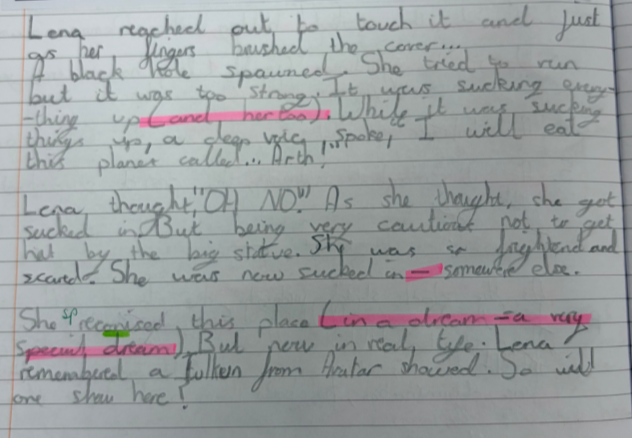 Lena reached out to touch it and just
as her fingers brushed the cover...
A black hole spawned. She tried to run
but it was too strong. It was sucking every-
-thing up (and her too). While it was sucking
things up, a deep voic, spoke, I will eat
this planet called... Arth!
Lena thought, "OH NO". As she thought, she got
sucked in. But being very cautions not to get
hat by the big statue. She was so and
scared. She was now sucked in — somewere else.
She sp reconised this place (in a dream - a very
speciul dream). But now in real lyfe. Lena
remembured a from Avatar showed. So will
one show here!